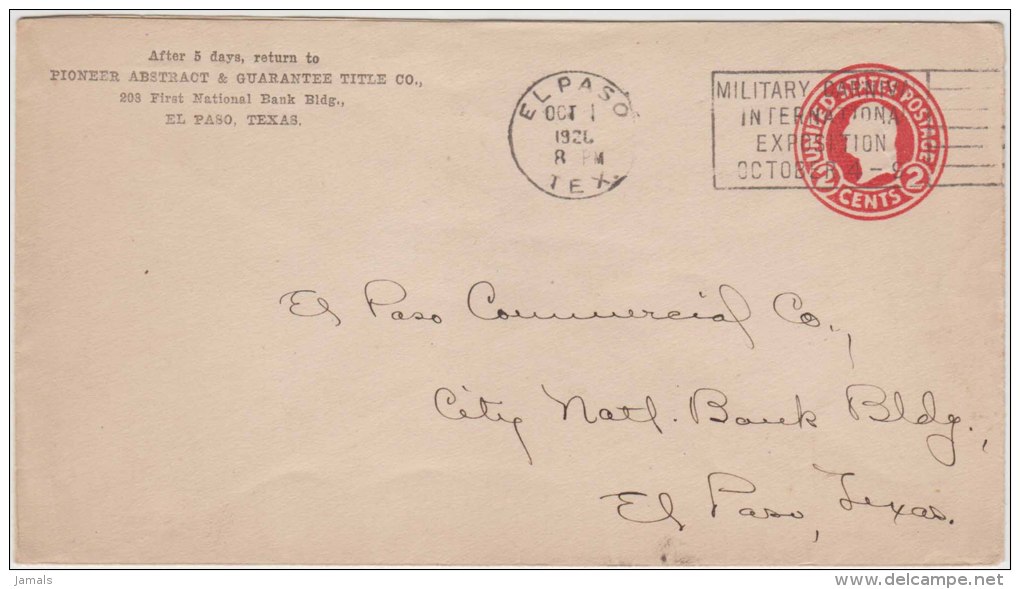 After 5 days, return to
PIONEER ABSTRACT & GUARANTEE TITLE CO.,
203 First National Bank Bldg.,
EL PASO, TEXAS.
EL PASO
OCT 1
1926
8 PM
TEX.
MILITARY CARNIVAL
INTERNATIONAL
EXPOSITION
OCTOBER 4 - 9
UNITED STATES POSTAGE
2 CENTS 2
El Paso Commercial Co.,
City Natl. Bank Bldg.,
El Paso, Texas.
jamals
www.delcampe.net